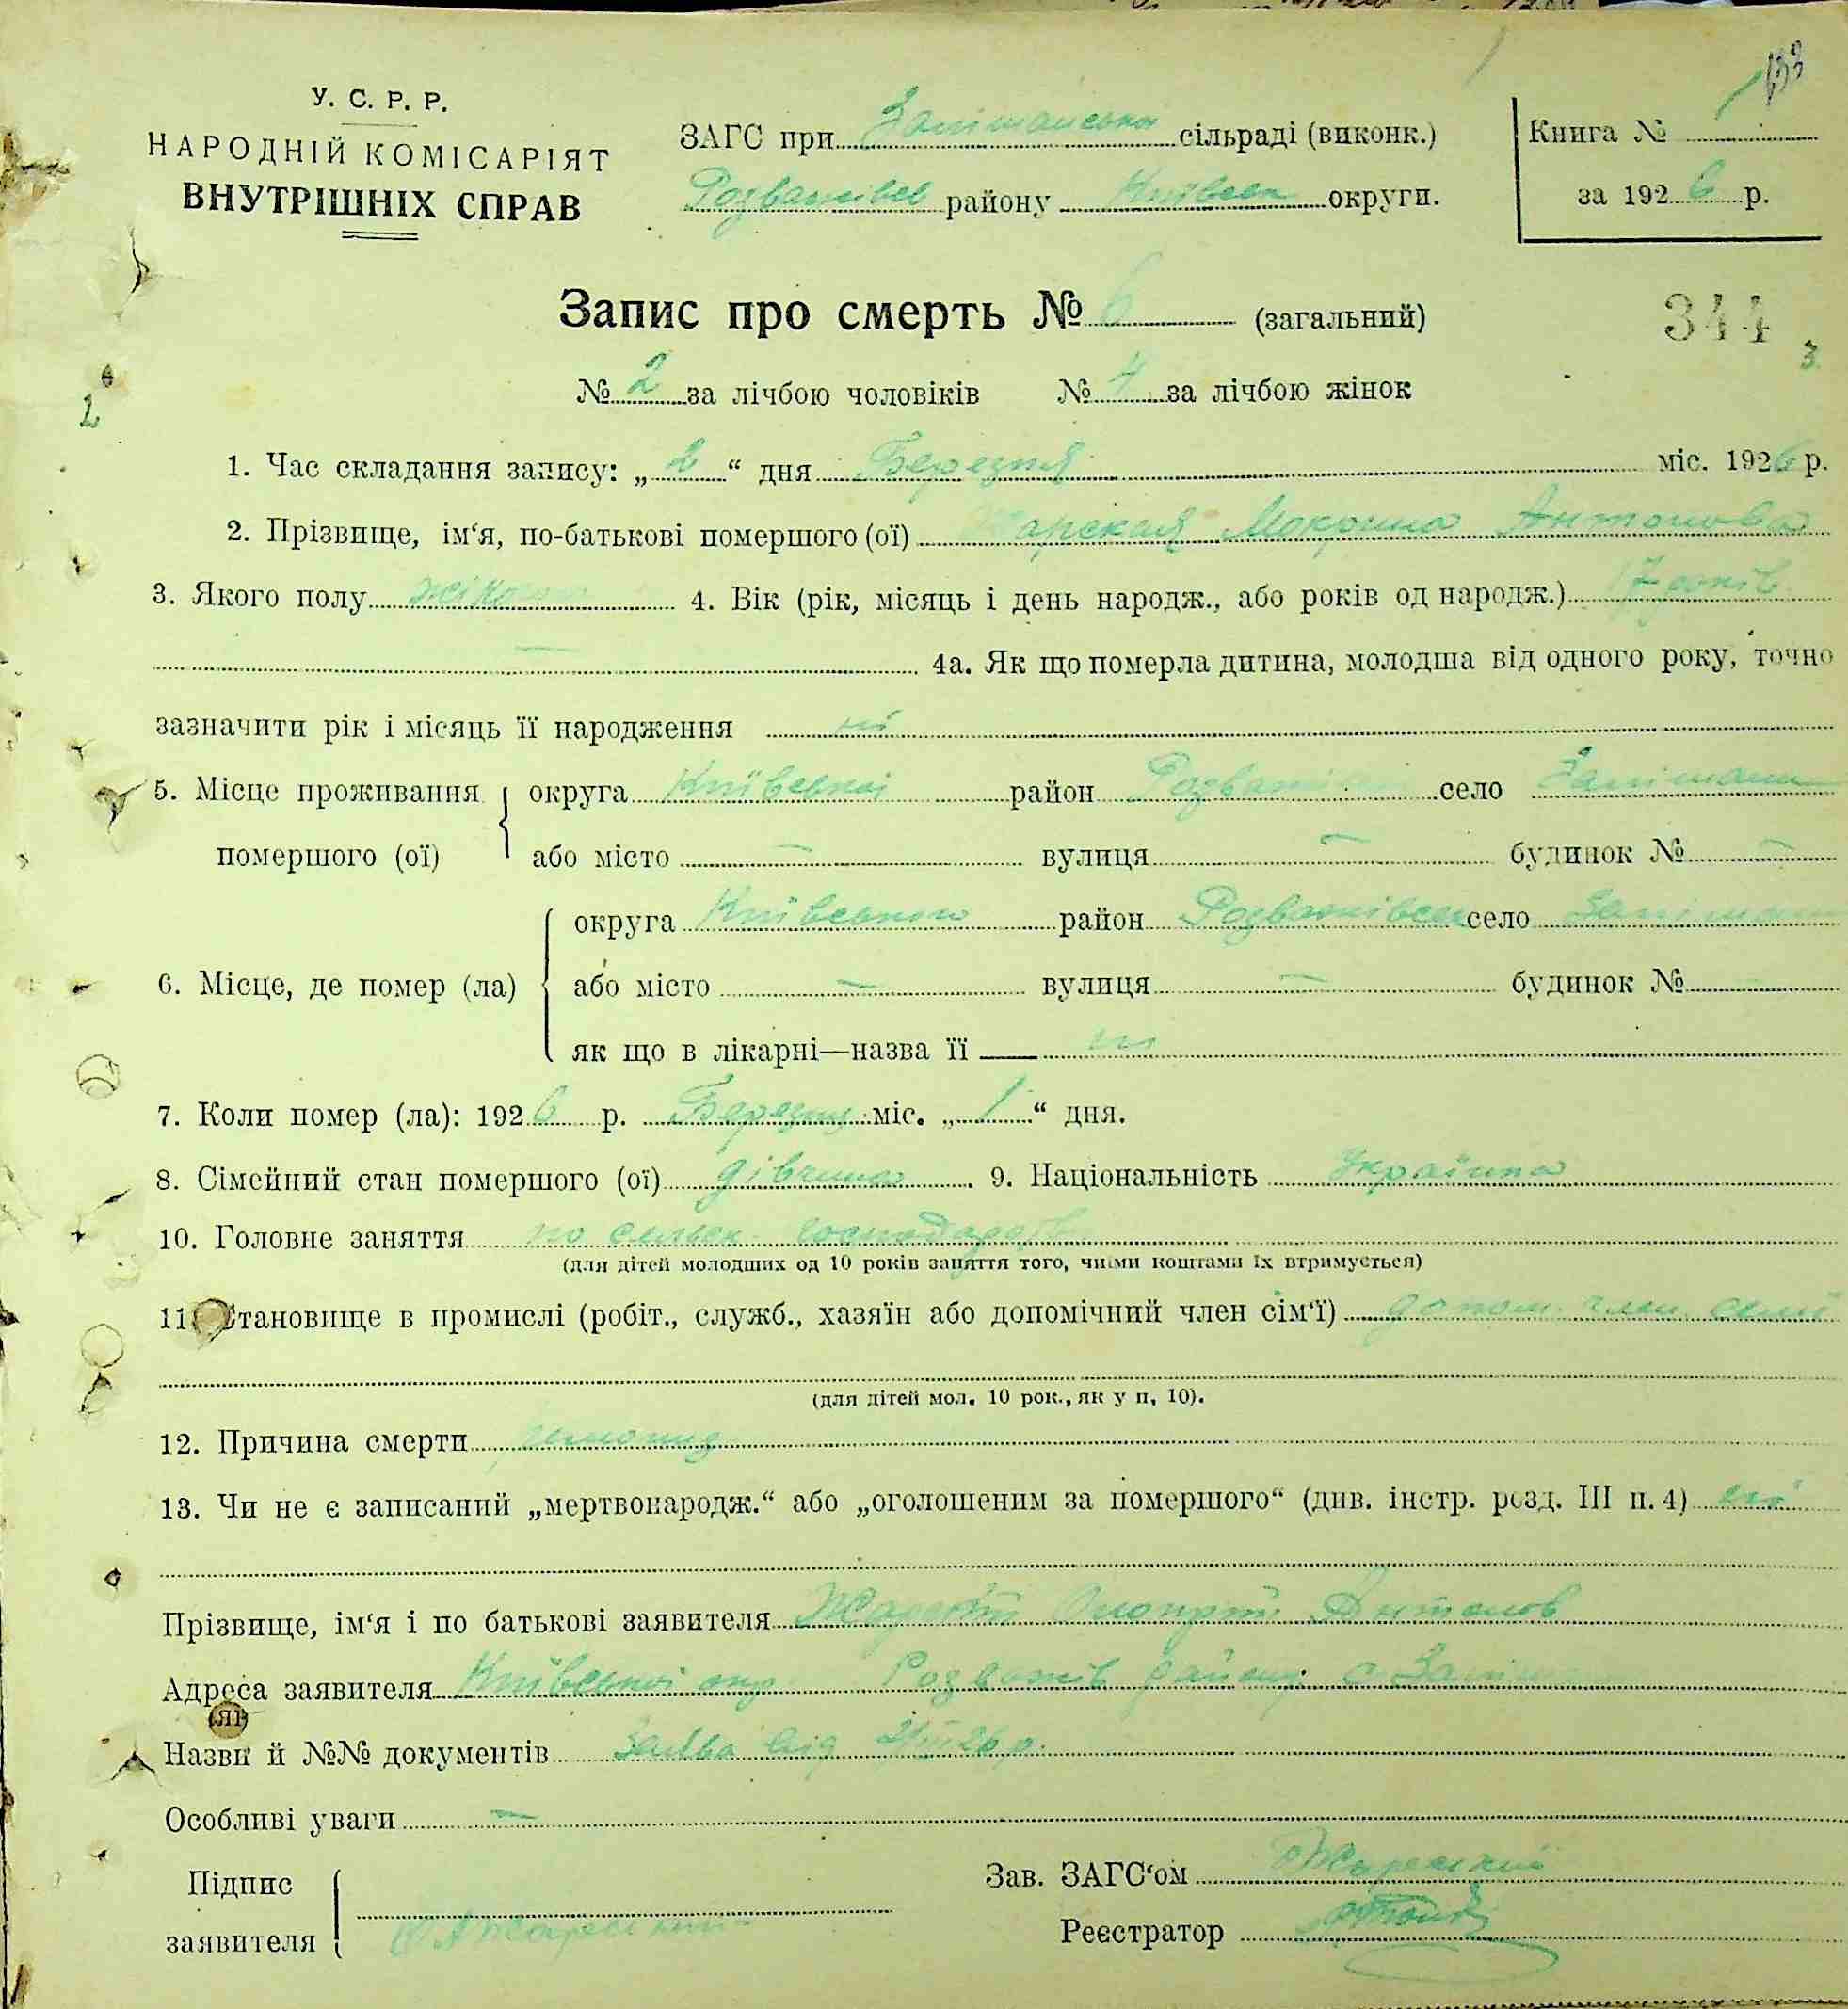 133
У. С. Р. Р.
НАРОДНІЙ КОМІСАРІЯТ
ВНУТРІШНІХ СПРАВ
ЗАГС при сільраді (виконк.)
району округи.
Книга №
за 1926 р.
Запис про смерть № 6 (загальний)
344
3
№ 2 за лічбою чоловіків № 4 за лічбою жінок
2
1. Час складання запису: „2“ дня Березня міс. 1926 р.
2. Прізвище, ім‘я, по-батькові помершого (ої) Мокрина Антонова
3. Якого полу 4. Вік (рік, місяць і день народж., або років од народж.) 17 років
— 4а. Як що померла дитина, молодша від одного року, точно
зазначити рік і місяць її народження ні
5. Місце проживання округа Київської район село
помершого (ої) або місто — вулиця — будинок № —
округа район село
6. Місце, де помер (ла) або місто — вулиця — будинок №
як що в лікарні—назва її
7. Коли помер (ла): 1926 р. міс. „1“ дня.
8. Сімейний стан помершого (ої) дівчина 9. Національність Українка
10. Головне заняття по сільск. господарст
(для дітей молодших од 10 років заняття того, чиїми коштами їх втримується)
11. Становище в промислі (робіт., служб., хазяїн або допомічний член сім‘ї) допом. член
(для дітей мол. 10 рок., як у п, 10).
12. Причина смерти
13. Чи не є записаний „мертвонародж.“ або „оголошеним за помершого“ (див. інстр. розд. III п. 4) ні
Прізвище, ім‘я і по батькові заявителя Антонов
Адреса заявителя Київської окр Розважів району с.
(я)
Назви й №№ документів Заява від 2/III 26 р.
Особливі уваги —
Підпис
заявителя
Зав. ЗАГС‘ом Жарский
Реєстратор